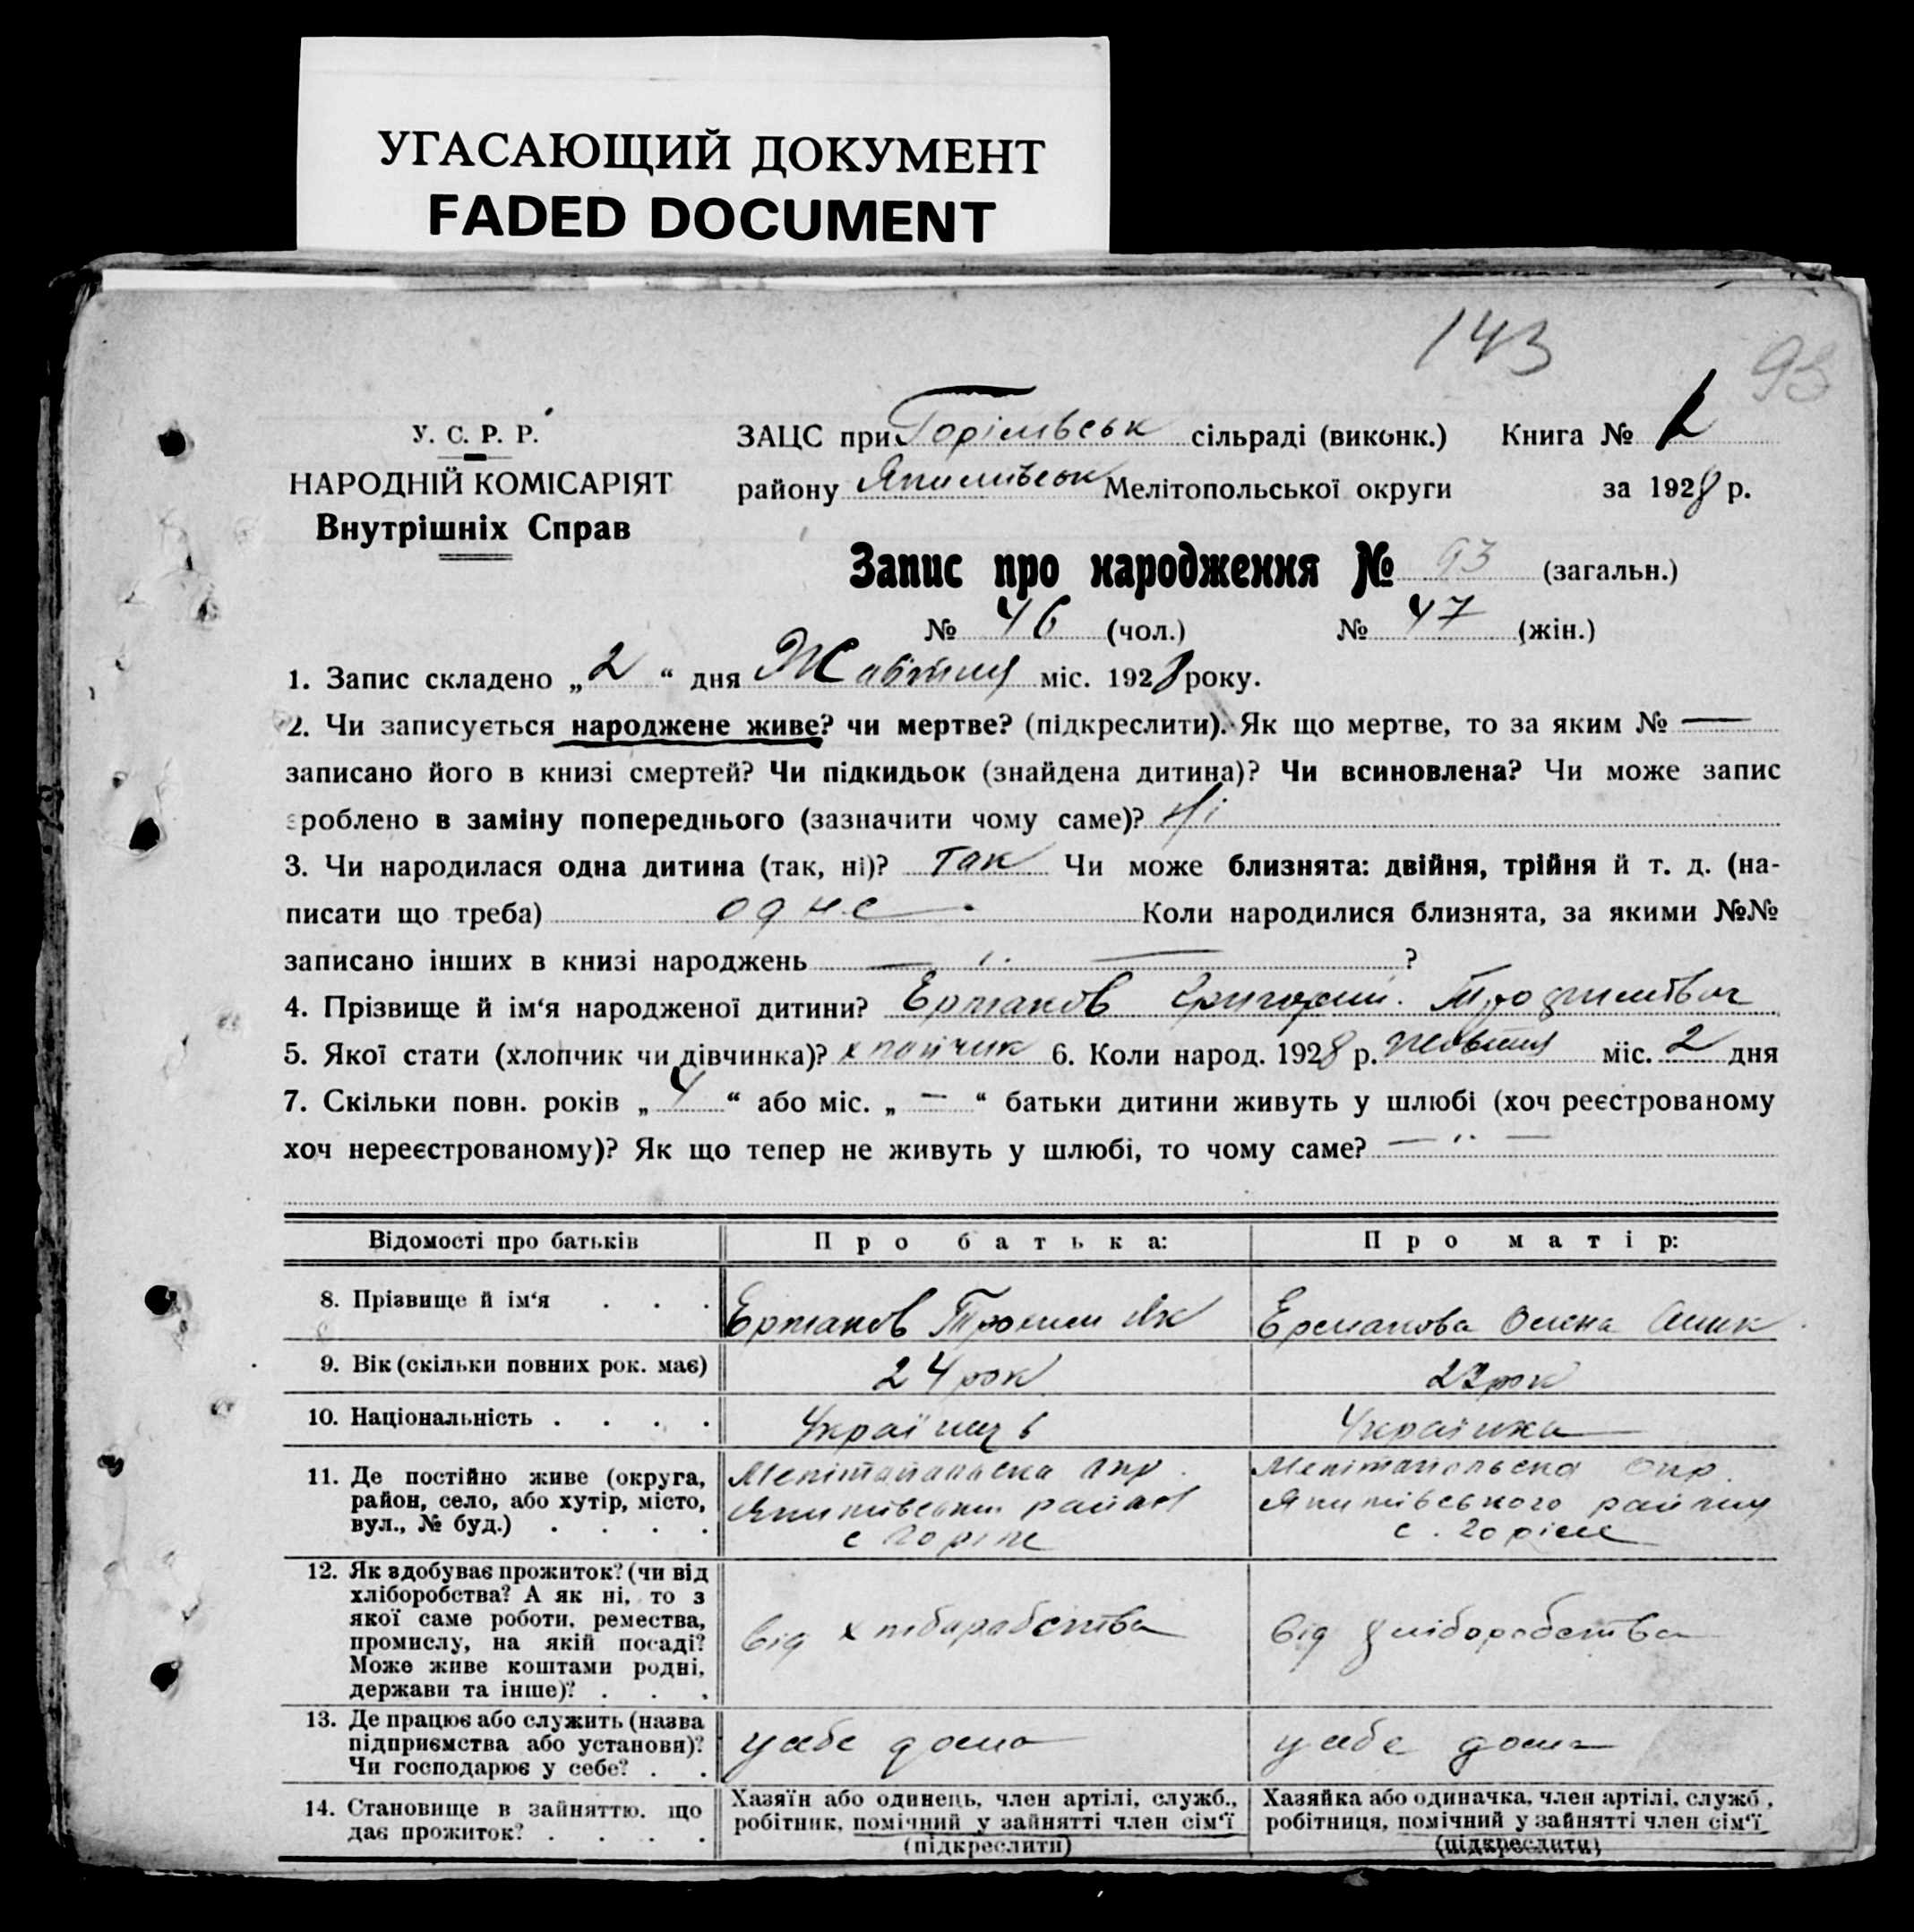 УГАСАЮЩИЙ ДОКУМЕНТ
FADED DOCUMENT
143
93
У. С. Р. Р.
НАРОДНІЙ КОМІСАРІЯТ
Внутрішніх Справ
ЗАЦС при Горільвськ сільраді (виконк.) Книга №
району Мелітопольської округи за 1928 р.
Запис про народження № 93 (загальн.)
№ 46 (чол.) № 47 (жін.)
1. Запис складено „2“ дня Жовтня міс. 1928 року.
2. Чи записується народжене живе? чи мертве? (підкреслити). Як що мертве, то за яким № —
записано його в книзі смертей? Чи підкидьок (знайдена дитина)? Чи всиновлена? Чи може запис
зроблено в заміну попереднього (зазначити чому саме)? Ні
3. Чи народилася одна дитина (так, ні)? так Чи може близнята: двійня, трійня й т. д. (на-
писати що треба) одне Коли народилися близнята, за якими №№
записано інших в книзі народжень — ,,. — ?
4. Прізвище й ім‘я народженої дитини? Ермаков Григорий Трохимівич
5. Якої стати (хлопчик чи дівчинка)? хлопчик 6. Коли народ. 1928 р. жовтня міс. 2 дня
7. Скільки повн. років „4“ або міс. „—“ батьки дитини живуть у шлюбі (хоч реєстрованому
хоч нереєстрованому)? Як що тепер не живуть у шлюбі, то чому саме? — ,, —
Відомості про батьків Про батька: Про матір:
8. Прізвище й ім‘я . . . Ермаков Трохим Як Ермакова Олена
9. Вік (скільки повних рок. має) 24 рок рок
10. Національність . . . . Українець Українка
11. Де постійно живе (округа, Мелітопольска окр. Мелітопольска окр.
район, село, або хутір, місто, район Якимівського району
вул., № буд.) . . . . с Горіле с. Горіле
12. Як здобуває прожиток? (чи від
хліборобства? А як ні, то з
якої саме роботи, ремества,
промислу, на якій посаді? від хліборобства від хліборобства
Може живе коштами родні,
держави та інше)? . . .
13. Де працює або служить (назва
підприємства або установи)? у себе дома у себе дома
Чи господарює у себе? . .
14. Становище в зайняттю, що дає прожиток? . . . .
Хазяїн або одинець, член артілі, служб., робітник, помічний у зайнятті член сім‘ї (підкреслити)
Хазяйка або одиначка, член артілі, служб., робітниця, помічний у зайнятті член сім‘ї (підкреслити)